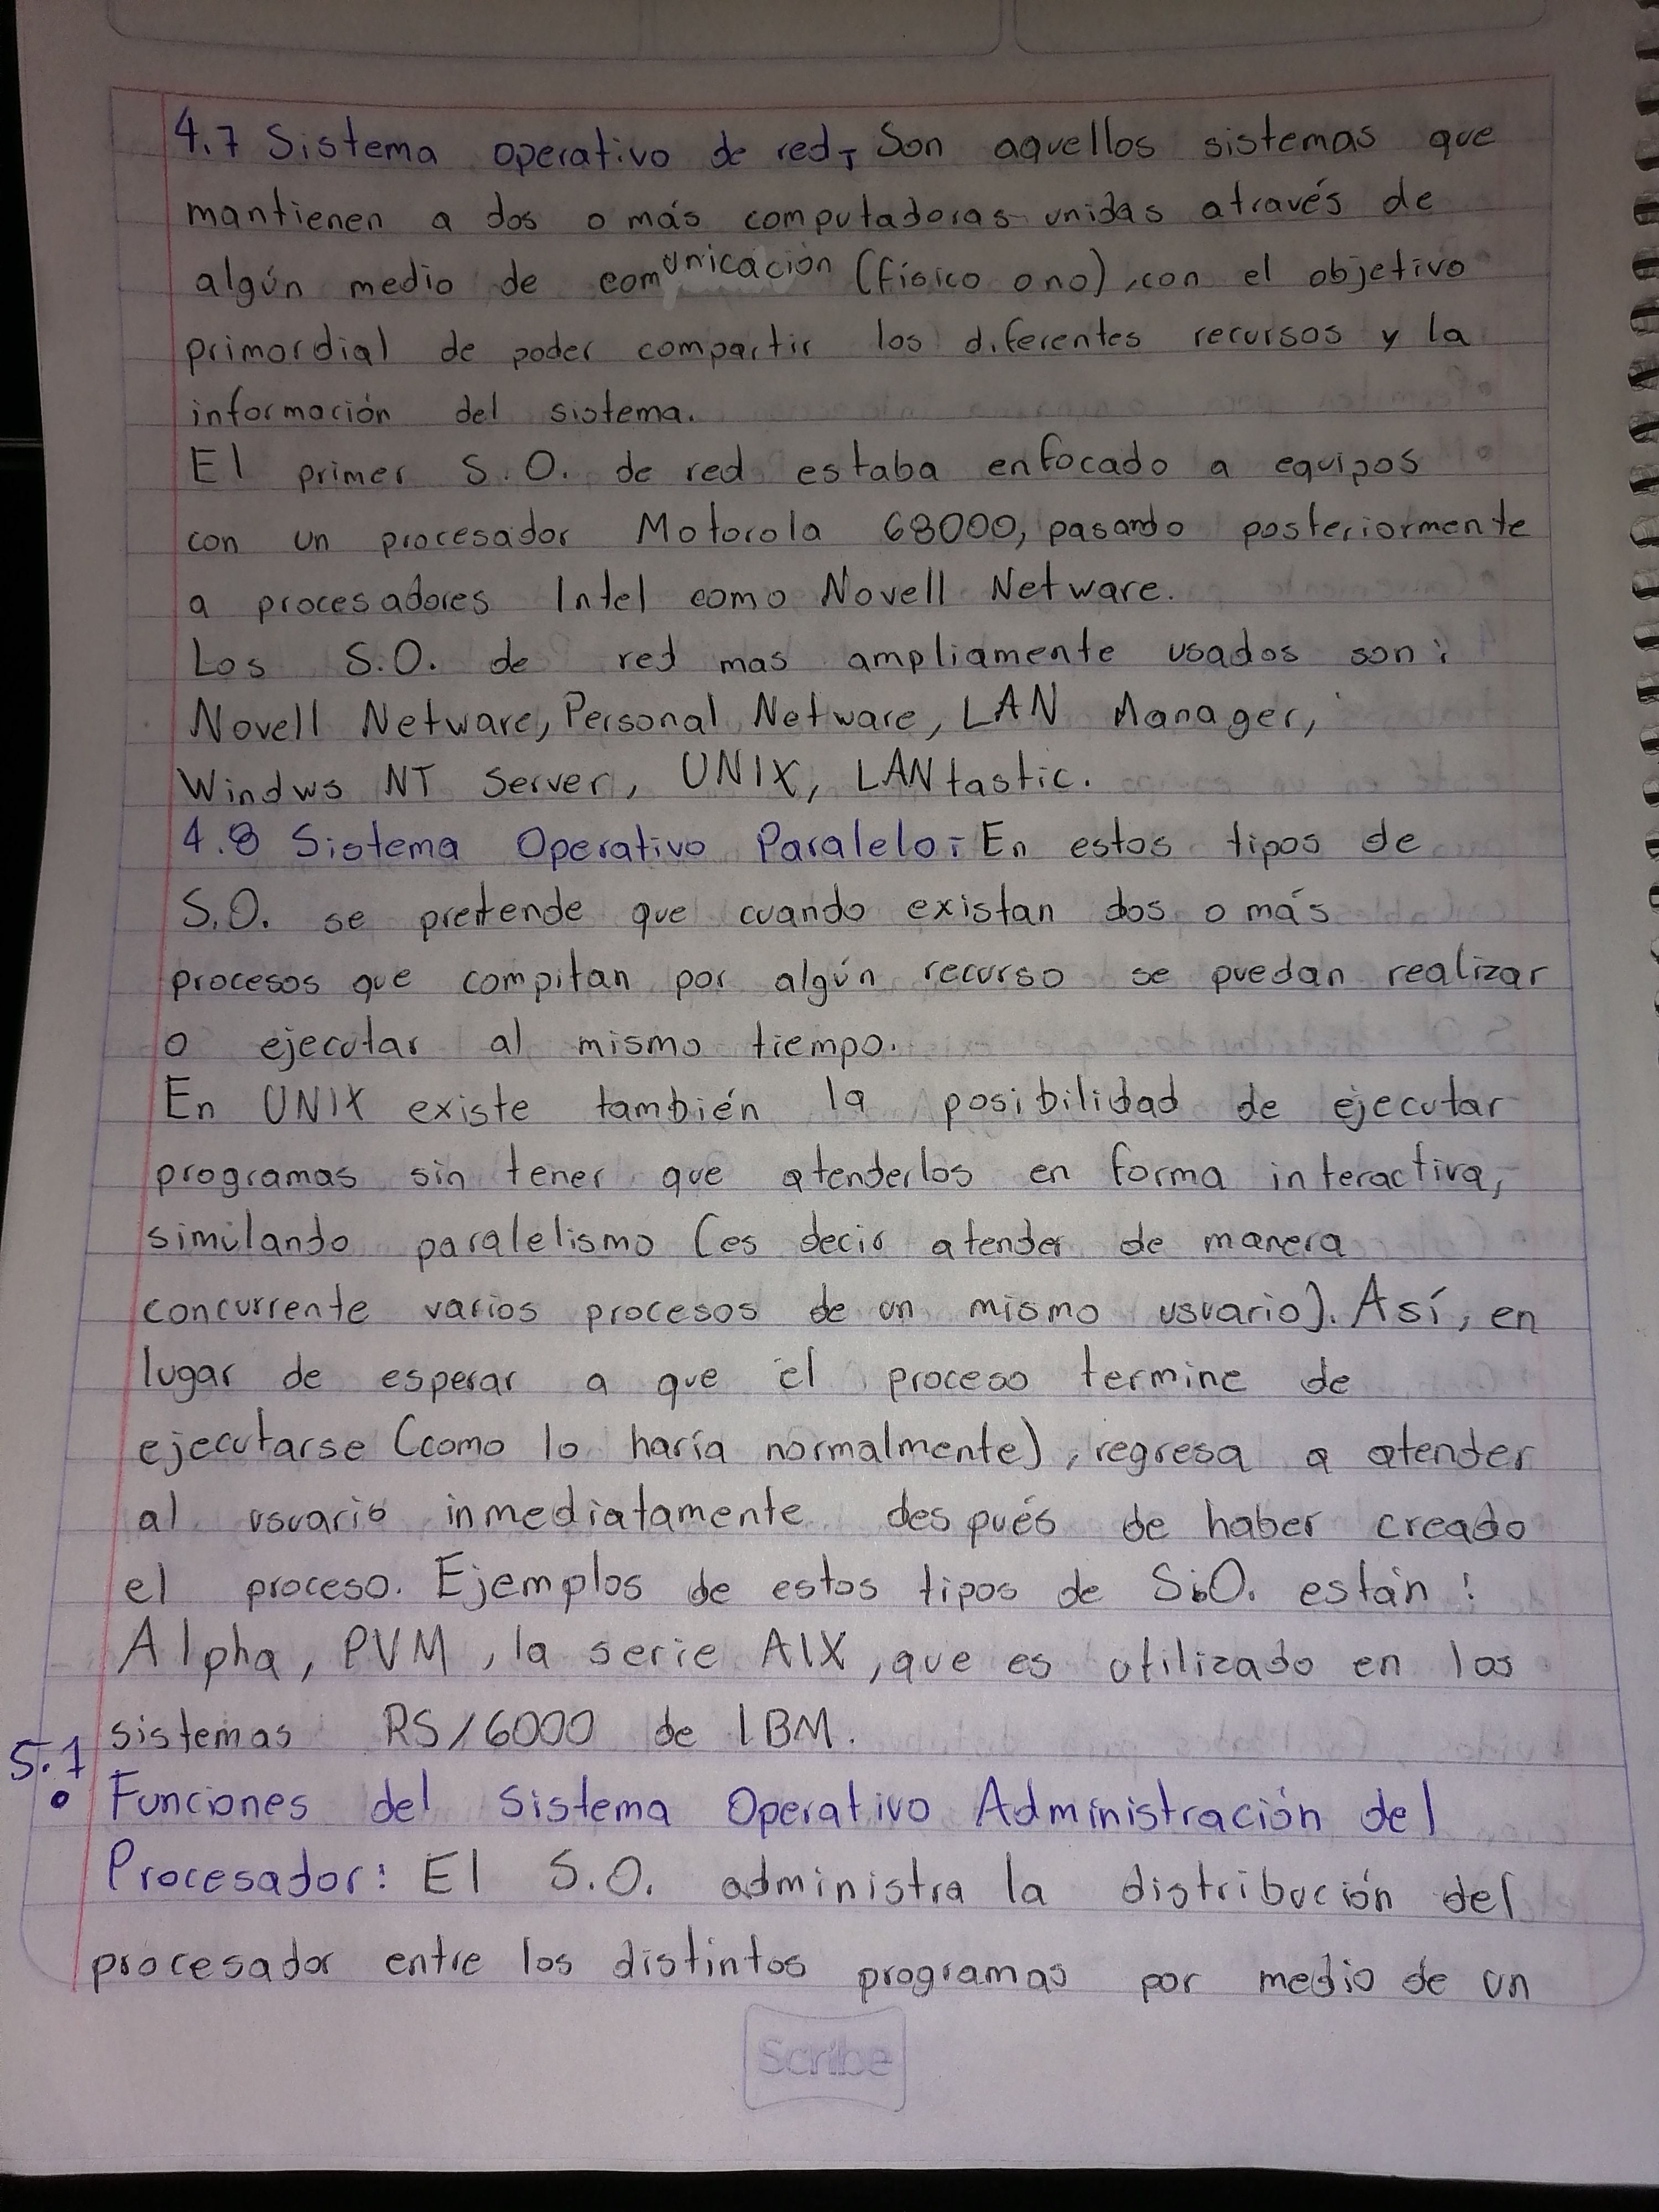 4.7 Sistema operativo de red: Son aquellos sistemas que
mantienen a dos o más computadoras unidas através de
algún medio de comunicación (físico o no), con el objetivo
primordial de poder compartir los diferentes recursos y la
información del sistema.
El primer S.O. de red estaba enfocado a equipos
con un procesador Motorola 68000, pasando posteriormente
a procesadores Intel como Novell Netware.
Los S.O. de red mas ampliamente usados son:
Novell Netware, Personal Netware, LAN Manager,
Windws NT Server, UNIX, LANtastic.
4.8 Sistema Operativo Paralelo: En estos tipos de
S.O. se pretende que cuando existan dos o más
procesos que compitan por algún recurso se puedan realizar
o ejecutar al mismo tiempo.
En UNIX existe también la posibilidad de ejecutar
programas sin tener que atenderlos en forma interactiva,
simulando paralelismo (es decir atender de manera
concurrente varios procesos de un mismo usuario). Así, en
lugar de esperar a que el proceso termine de
ejecutarse (como lo haría normalmente), regresa a atender
al usuario inmediatamente después de haber creado
el proceso. Ejemplos de estos tipos de S.O. están:
Alpha, PVM, la serie AIX, que es utilizado en los
sistemas RS/6000 de IBM.
5.1
• Funciones del Sistema Operativo Administración del
Procesador: El S.O. administra la distribución del
procesador entre los distintos programas por medio de un
Scribe